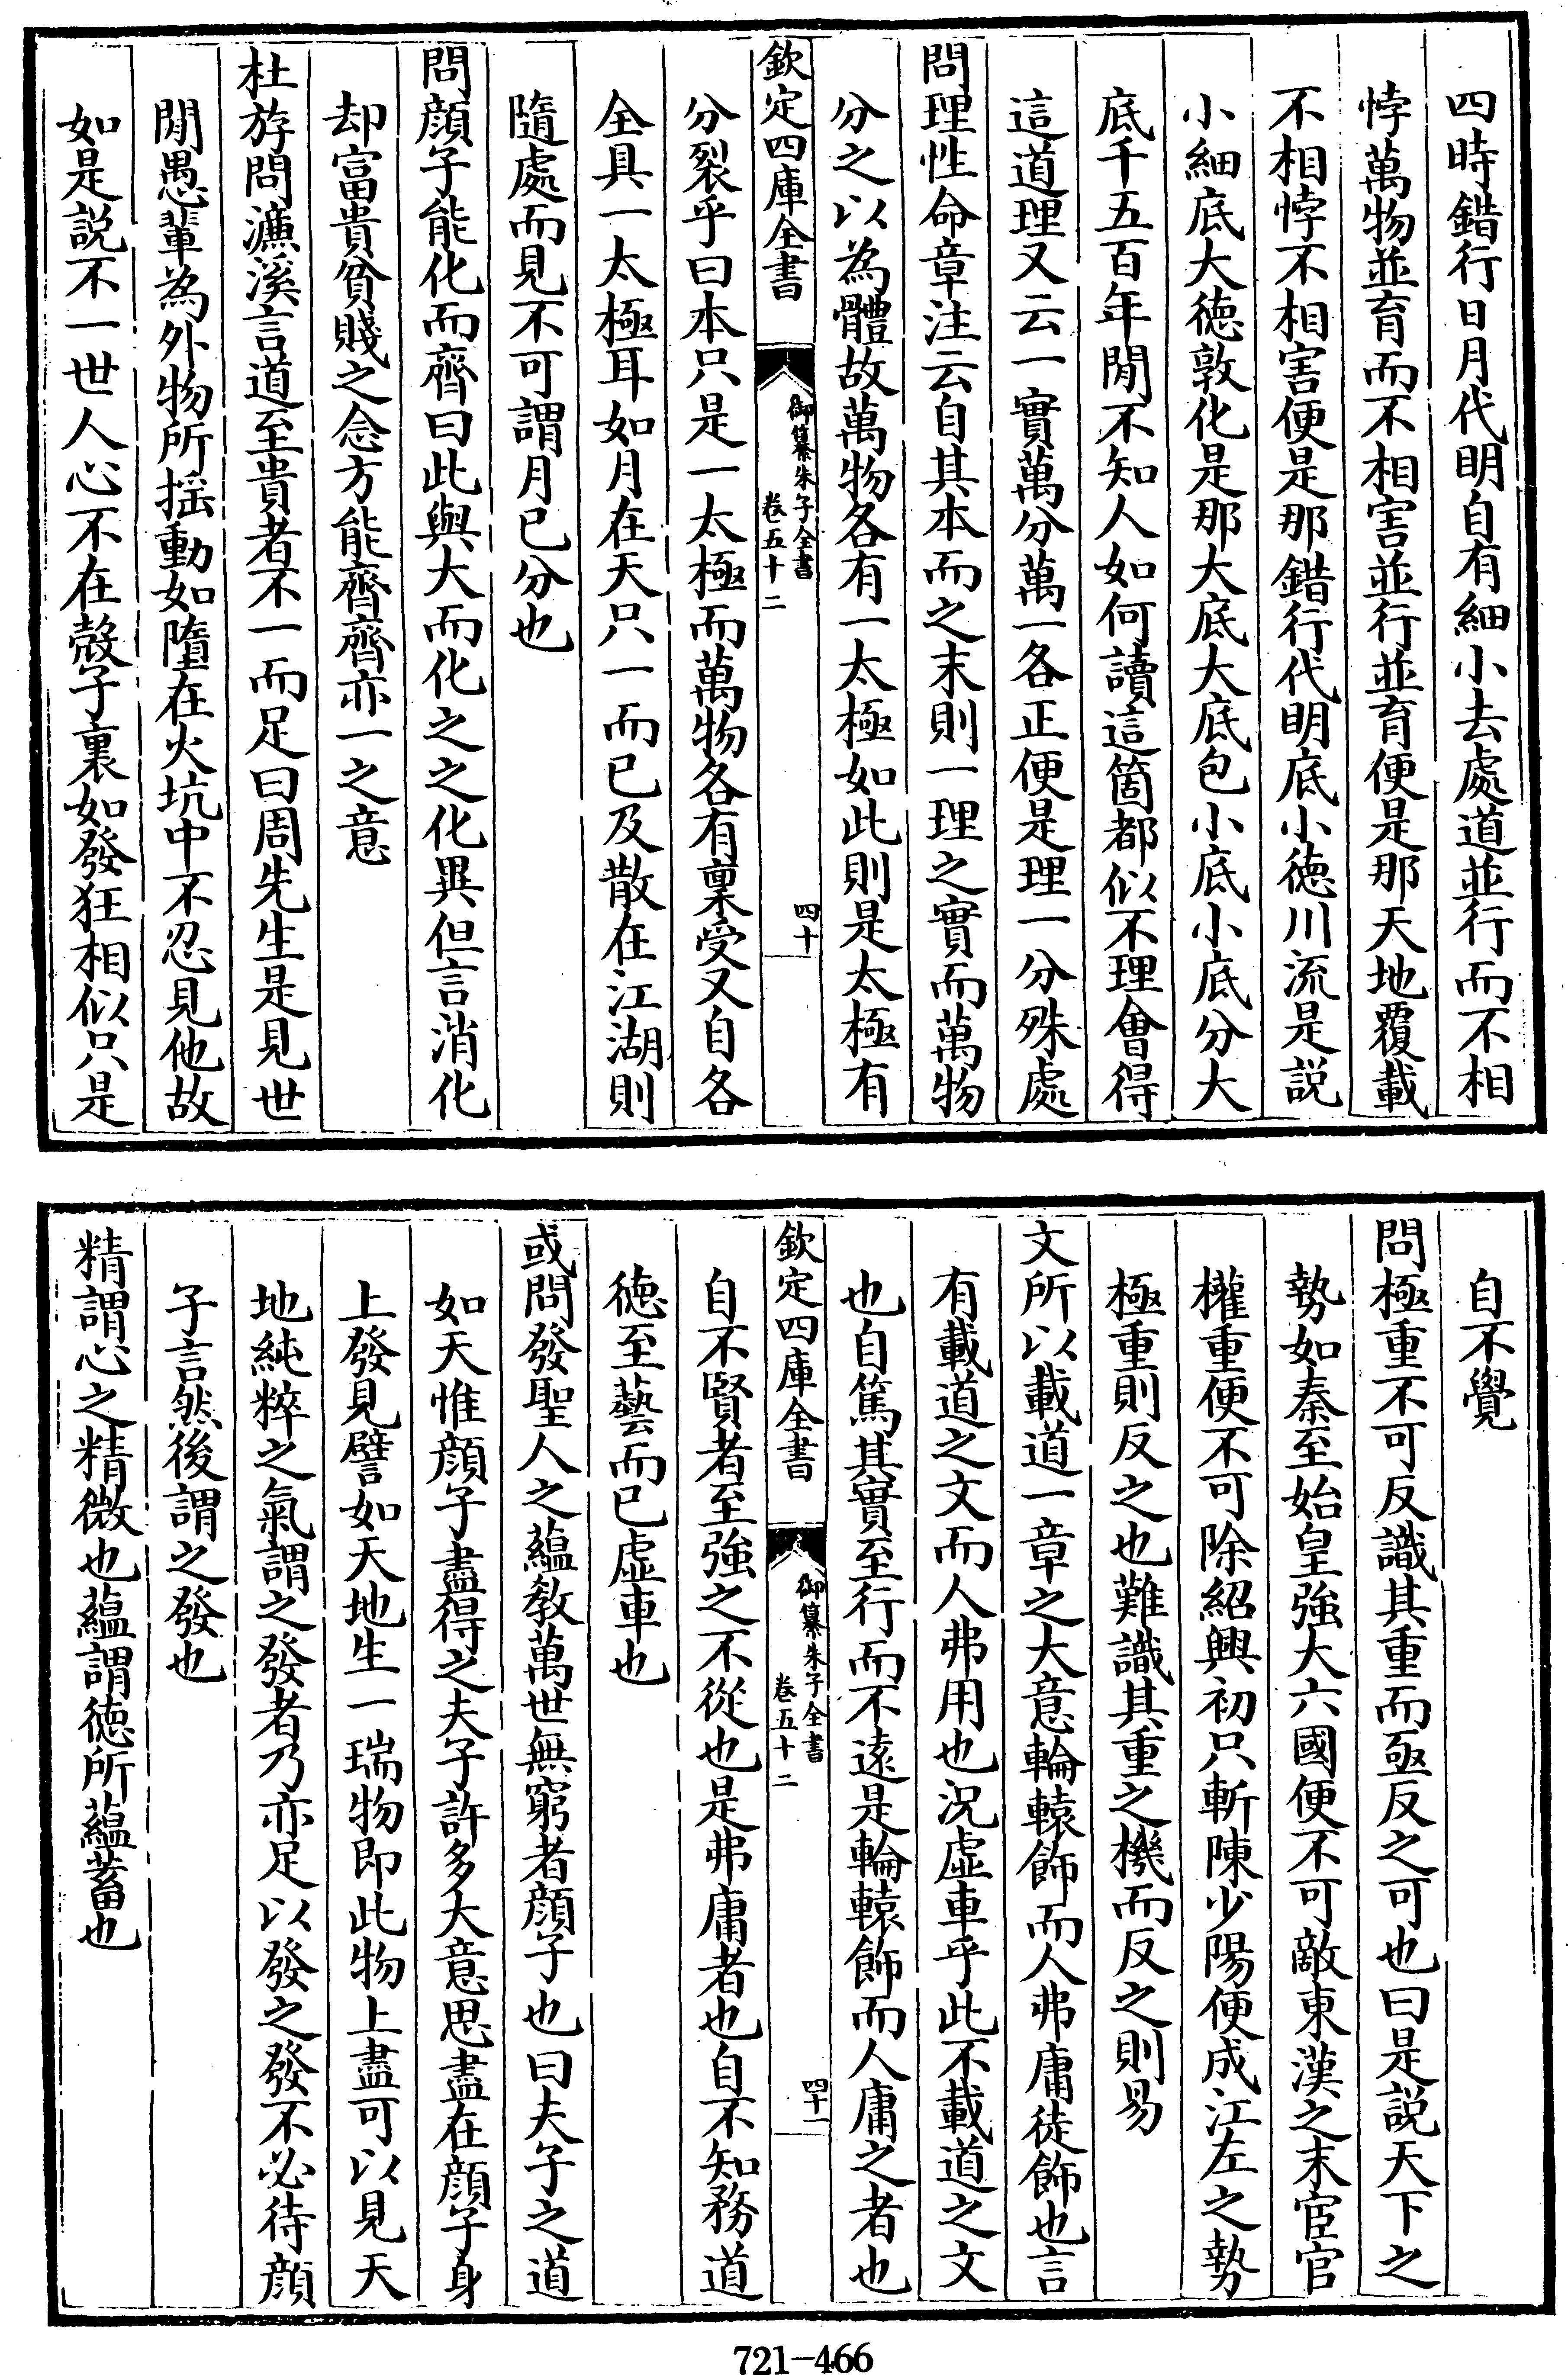 四時錯行日月代明自有細小去處道並行而不相
悖萬物並育而不相害並行並育便是那天地覆載
不相悖不相害便是那錯行代明底小徳川流是説
小細底大徳敦化是那大底大底包小底小底分大
底千五百年閒不知人如何讀這箇都似不理會得
這道理又云一實萬分萬一各正便是理一分殊處
問理性命章注云自其本而之末則一理之實而萬物
分之以為體故萬物各有一太極如此則是太極有
欽定四庫全書
御纂朱子全書
卷五十二
四十
分裂乎曰本只是一太極而萬物各有稟受又自各
全具一太極耳如月在天只一而已及散在江湖則
隨處而見不可謂月已分也
問顔子能化而齊曰此與大而化之之化異但言消化
却富貴貧賤之念方能齊齊亦一之意
杜斿問濂溪言道至貴者不一而足曰周先生是見世
閒愚輩為外物所揺動如墮在火坑中不忍見他故
如是説不一世人心不在殻子裏如發狂相似只是
自不覺
問極重不可反識其重而亟反之可也曰是説天下之
勢如秦至始皇強大六國便不可敵東漢之末宦官
權重便不可除紹興初只斬陳少陽便成江左之勢
極重則反之也難識其重之機而反之則易
文所以載道一章之大意輪轅飾而人弗庸徒飾也言
有載道之文而人弗用也況虚車乎此不載道之文
也自篤其實至行而不逺是輪轅飾而人庸之者也
欽定四庫全書
御纂朱子全書
卷五十二
四十一
自不賢者至強之不從也是弗庸者也自不知務道
徳至藝而已虚車也
或問發聖人之藴教萬世無窮者顔子也曰夫子之道
如天惟顔子盡得之夫子許多大意思盡在顔子身
上發見譬如天地生一瑞物即此物上盡可以見天
地純粹之氣謂之發者乃亦足以發之發不必待顔
子言然後謂之發也
精謂心之精微也藴謂徳所藴蓄也
721-466